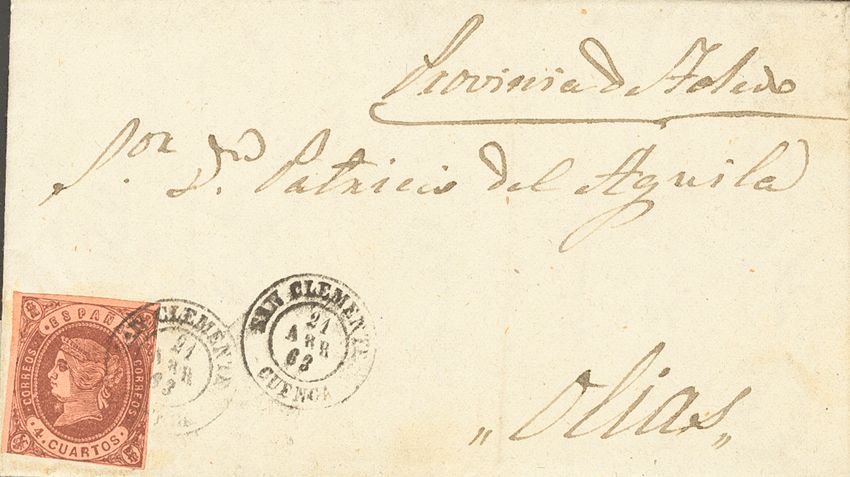 Provinia de Toledo
S.or D.n Patricio del Aguila
„Olias„
ESPAÑA
CORREOS
CORREOS
4 CUARTOS
SAN CLEMENTE
21
ABR
63
SAN CLEMENTE
21
ABR
63
CUENCA